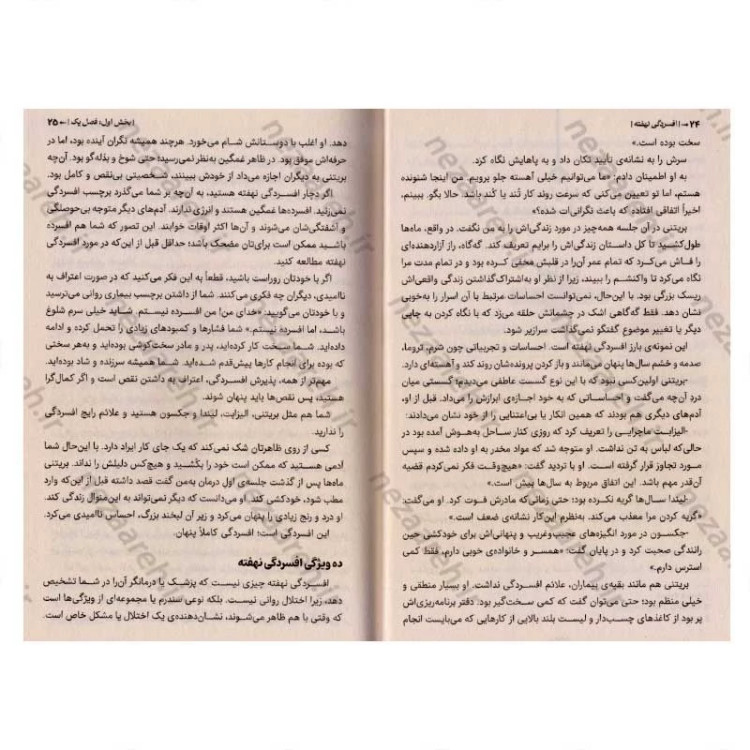 ۲۴ ← | افسردگی نهفته |
سخت بوده است.»
سرش را به نشانه‌ی تأیید تکان داد و به پاهایش نگاه کرد.
به او اطمینان دادم: «ما می‌توانیم خیلی آهسته جلو برویم. من اینجا شنونده
هستم، اما تو تعیین می‌کنی که سرعت روند کار تُند یا کُند باشد. حالا بگو. ببینم،
اخیراً اتفاقی افتاده که باعث نگرانی‌ات شده؟»
بریتنی در آن جلسه همه‌چیز در مورد زندگی‌اش را به من نگفت. در واقع، ماه‌ها
طول کشید تا کل داستان زندگی‌اش را برایم تعریف کند. گه‌گاه، راز آزاردهنده‌ای
را فاش می‌کرد که تمام عمر آن‌را در قلبش مخفی کرده بود و در تمام مدت مرا
نگاه می‌کرد تا واکنشم را ببیند، زیرا از نظر او به‌اشتراک‌گذاشتن زندگی واقعی‌اش
ریسک بزرگی بود. با این‌حال، نمی‌توانست احساسات مرتبط با آن اسرار را به‌خوبی
نشان دهد. فقط گه‌گاهی اشک در چشمانش حلقه می‌زد که با نگاه کردن به جایی
دیگر یا تغییر موضوع گفتگو نمی‌گذاشت سرازیر شود.
این نمونه‌ی بارز افسردگی نهفته است. احساسات و تجربیاتی چون شرم، تروما،
صدمه و خشم سال‌ها پنهان می‌مانند و باز کردن پرونده‌شان روند کند و آهسته‌ای دارد.
-بریتنی اولین‌کسی نبود که با این نوع گسست عاطفی می‌دیدم؛ گسستی میان
دردِ آن‌چه می‌گفت و احساساتی که به خود اجازه‌ی ابرازش را می‌داد. قبل از او،
آدم‌های دیگری هم بودند که همین انکار یا بی‌اعتنایی را از خود نشان می‌دادند:
-الیزابت ماجرایی را تعریف کرد که روزی کنار ساحل به‌هوش آمده بود در
حالی‌که لباس به تن نداشت. او متوجه شد که مواد مخدر به او داده شده و سپس
مورد تجاوز قرار گرفته است. او با تردید گفت: «هیچ‌وقت فکر نمی‌کردم قضیه
آن‌قدر مهم باشد. این اتفاق مربوط به سال‌ها پیش است.»
-لیندا سال‌ها گریه نکرده بود؛ حتی زمانی‌که مادرش فوت کرد. او می‌گفت:
«گریه کردن مرا معذب می‌کند. به‌نظرم این‌کار نشانه‌ی ضعف است.»
-جکسون در مورد انگیزه‌های عجیب‌وغریب و پنهانی‌اش برای خودکشی حین
رانندگی صحبت کرد و در پایان گفت: «همسر و خانواده‌ی خوبی دارم، فقط کمی
استرس دارم.»
بریتنی هم مانند بقیه‌ی بیماران، علائم افسردگی نداشت. او بسیار منطقی و
خیلی منظم بود؛ حتی می‌توان گفت که کمی سخت‌گیر بود. دفتر برنامه‌ریزی‌اش
پر بود از کاغذهای چسب‌دار و لیست بلند بالایی از کارهایی که می‌بایست انجام
| بخش اول؛ فصل یک | ← ۲۵
دهد. او اغلب با دوستانش شام می‌خورد. هرچند همیشه نگران آینده بود، اما در
حرفه‌اش موفق بود. در ظاهر غمگین به‌نظر نمی‌رسید؛ حتی شوخ و بذله‌گو بود. آن‌چه
بریتنی به دیگران اجازه می‌داد از خودش ببینند، شخصیتی بی‌نقص و کامل بود.
اگر دچار افسردگی نهفته هستید، به آن‌چه بر شما می‌گذرد برچسب افسردگی
نمی‌زنید. افسرده‌ها غمگین هستند و انرژی ندارند. آدم‌های دیگر متوجه بی‌حوصلگی
و آشفتگی‌شان می‌شوند و آن‌ها اکثر اوقات خوابند. این تصور که شما هم افسرده
باشید ممکن است برای‌تان مضحک باشد؛ حداقل قبل از این‌که در مورد افسردگی
نهفته مطالعه کنید.
اگر با خودتان روراست باشید، قطعاً به این فکر می‌کنید که در صورت اعتراف به
ناامیدی، دیگران چه فکری می‌کنند. شما از داشتن برچسب بیماری روانی می‌ترسید
و با خودتان می‌گویید: «خدای من! من افسرده نیستم. شاید خیلی سرم شلوغ
باشد، اما افسرده نیستم.» شما فشارها و کمبودهای زیادی را تحمل کرده و ادامه
داده‌اید. شما سخت کار کرده‌اید، پدر و مادر سخت‌کوشی بوده‌اید و به‌هر سختی
که بوده برای انجام کارها پیش‌قدم شده‌اید. شما همیشه سرزنده و شاد بوده‌اید.
مهم‌تر از همه، پذیرش افسردگی، اعتراف به داشتن نقص است و اگر کمال‌گرا
هستید، پس نقص‌ها باید پنهان شوند.
شما هم مثل بریتنی، الیزابت، لیندا و جکسون هستید و علائم رایج افسردگی
را ندارید.
کسی از روی ظاهرتان شک نمی‌کند که یک جای کار ایراد دارد. با این‌حال شما
آدمی هستید که ممکن است خود را بکُشید و هیچ‌کس دلیلش را نداند. بریتنی
ماه‌ها پس از گذشت جلسه‌ی اول درمان به‌من گفت قصد داشته قبل از این‌که وارد
مطب شود، خودکشی کند. او می‌دانست که دیگر نمی‌تواند به این‌منوال زندگی کند.
او درد و رنج زیادی را پنهان می‌کرد و زیر آن لبخند بزرگ، احساس ناامیدی می‌کرد.
این افسردگی است؛ افسردگی کاملاً پنهان.
ده ویژگی افسردگی نهفته
افسردگی نهفته چیزی نیست که پزشک یا درمانگر آن‌را در شما تشخیص
دهد، زیرا اختلال روانی نیست. بلکه نوعی سندرم یا مجموعه‌ای از ویژگی‌ها است
که وقتی با هم ظاهر می‌شوند، نشان‌دهنده‌ی یک اختلال یا مشکل خاص است.
nezaareh.ir